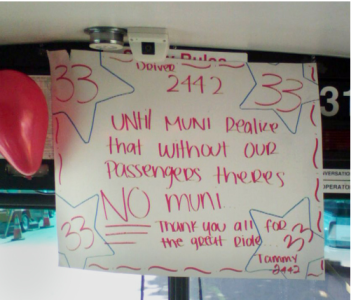 Rules
Driver
2442
33
33
31
UNTIl MUNI Realize
that without OUR
Passengers theres
NO muni...
Thank you all for
the great Ride...
33
33
Tammy
2442
OPERATOR